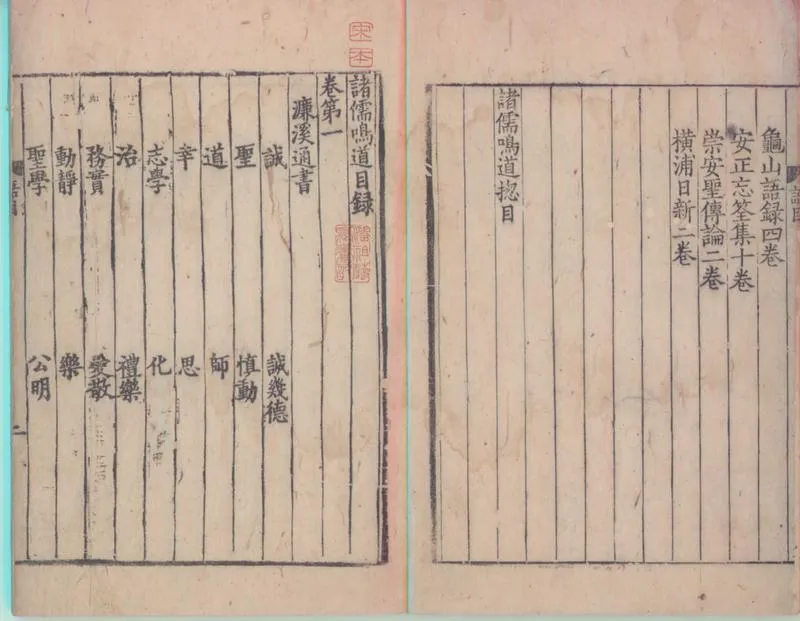 龜山語録四卷
安正忘筌集十卷
崇安聖傳論二卷
橫浦日新二卷
諸儒鳴道揔目
諸儒鳴道目録
卷第一
濂溪通書
誠 誠幾德
聖 慎動
道 師
幸 思
志學 化
治 禮樂
務實 愛敬
動靜 樂
聖學 公明